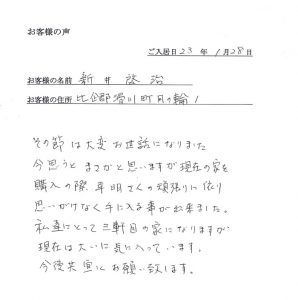 お客様の声
ご入居日 23 年 1月28日
お客様の名前 新井 啓治
お客様の住所 比企郡滑川町月の輪1
その節は大変お世話になりました
今思うと まさかと思いますが現在の家を
購入の際、早明さくの頑張りに依り
思いがけなく手に入る事が出来ました。
私達にとって三軒目の家になりますが
現在は大いに気に入っています。
今後共宜しくお願い致します。